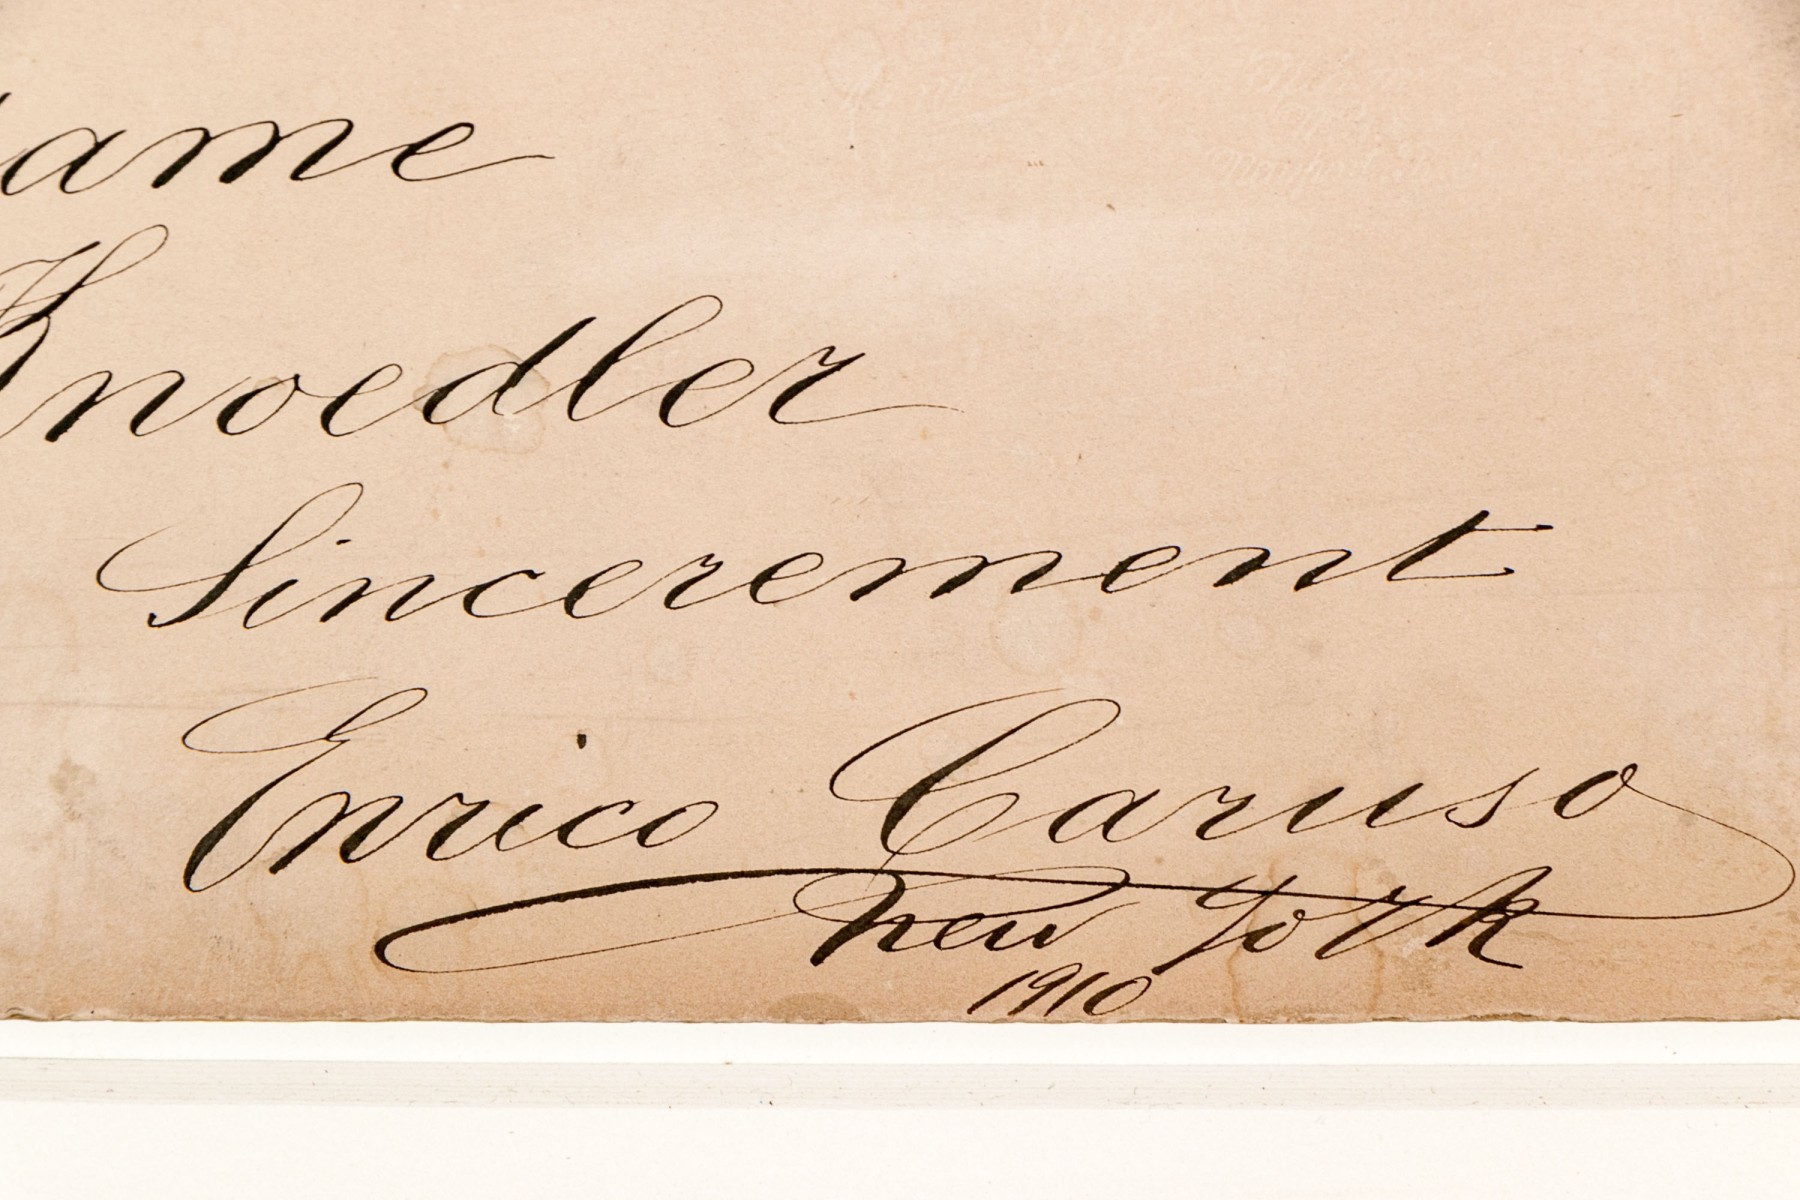 ame
Knoedler
Sincerement
Enrico Caruso
New York
1910